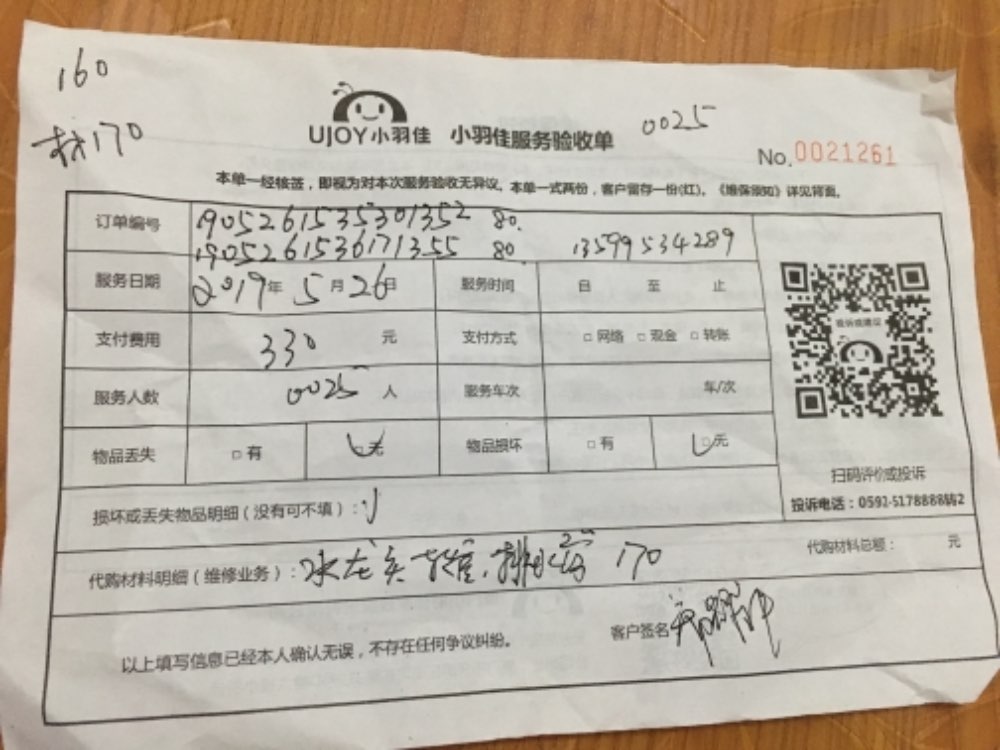 160
材170
UJOY小羽佳 小羽佳服务验收单 0025
No.0021261
本单一经核签，即视为对本次服务验收无异议。本单一式两份，客户留存一份(红)。《维保须知》详见背面。
订单编号 1905261535301352 80.
1905261536171355 80 13599534289
服务日期 2019年 5月26日 服务时间 日 至 止
支付费用 330 元 支付方式 □网络 □现金 □转账
服务人数 0025 人 服务车次 车/次
物品丢失 □有 □无 物品损坏 □有 □无
扫码评价或投诉
投诉电话：0592-5178888转2
损坏或丢失物品明细（没有可不填）：
代购材料明细（维修业务）：水龙头 170
代购材料总额： 元
以上填写信息已经本人确认无误，不存在任何争议纠纷。
客户签名